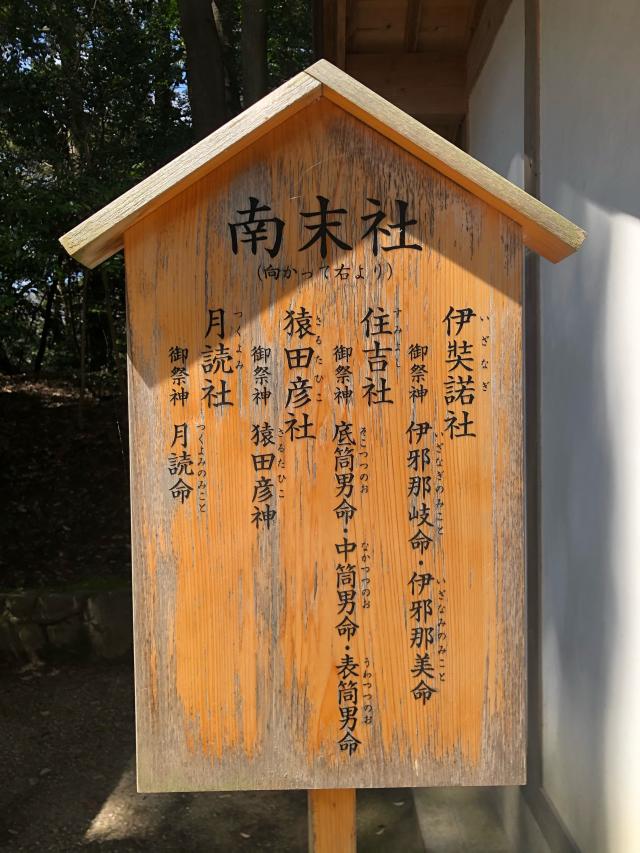 南末社
（向かって右より）
いざなぎ
伊奘諾社
いざなぎのみこと いざなみのみこと
御祭神 伊邪那岐命・伊邪那美命
すみよし
住吉社
そこつつのお なかつつのお うわつつのお
御祭神 底筒男命・中筒男命・表筒男命
さるたひこ
猿田彦社
さるたひこ
御祭神 猿田彦神
つくよみ
月読社
つくよみのみこと
御祭神 月読命